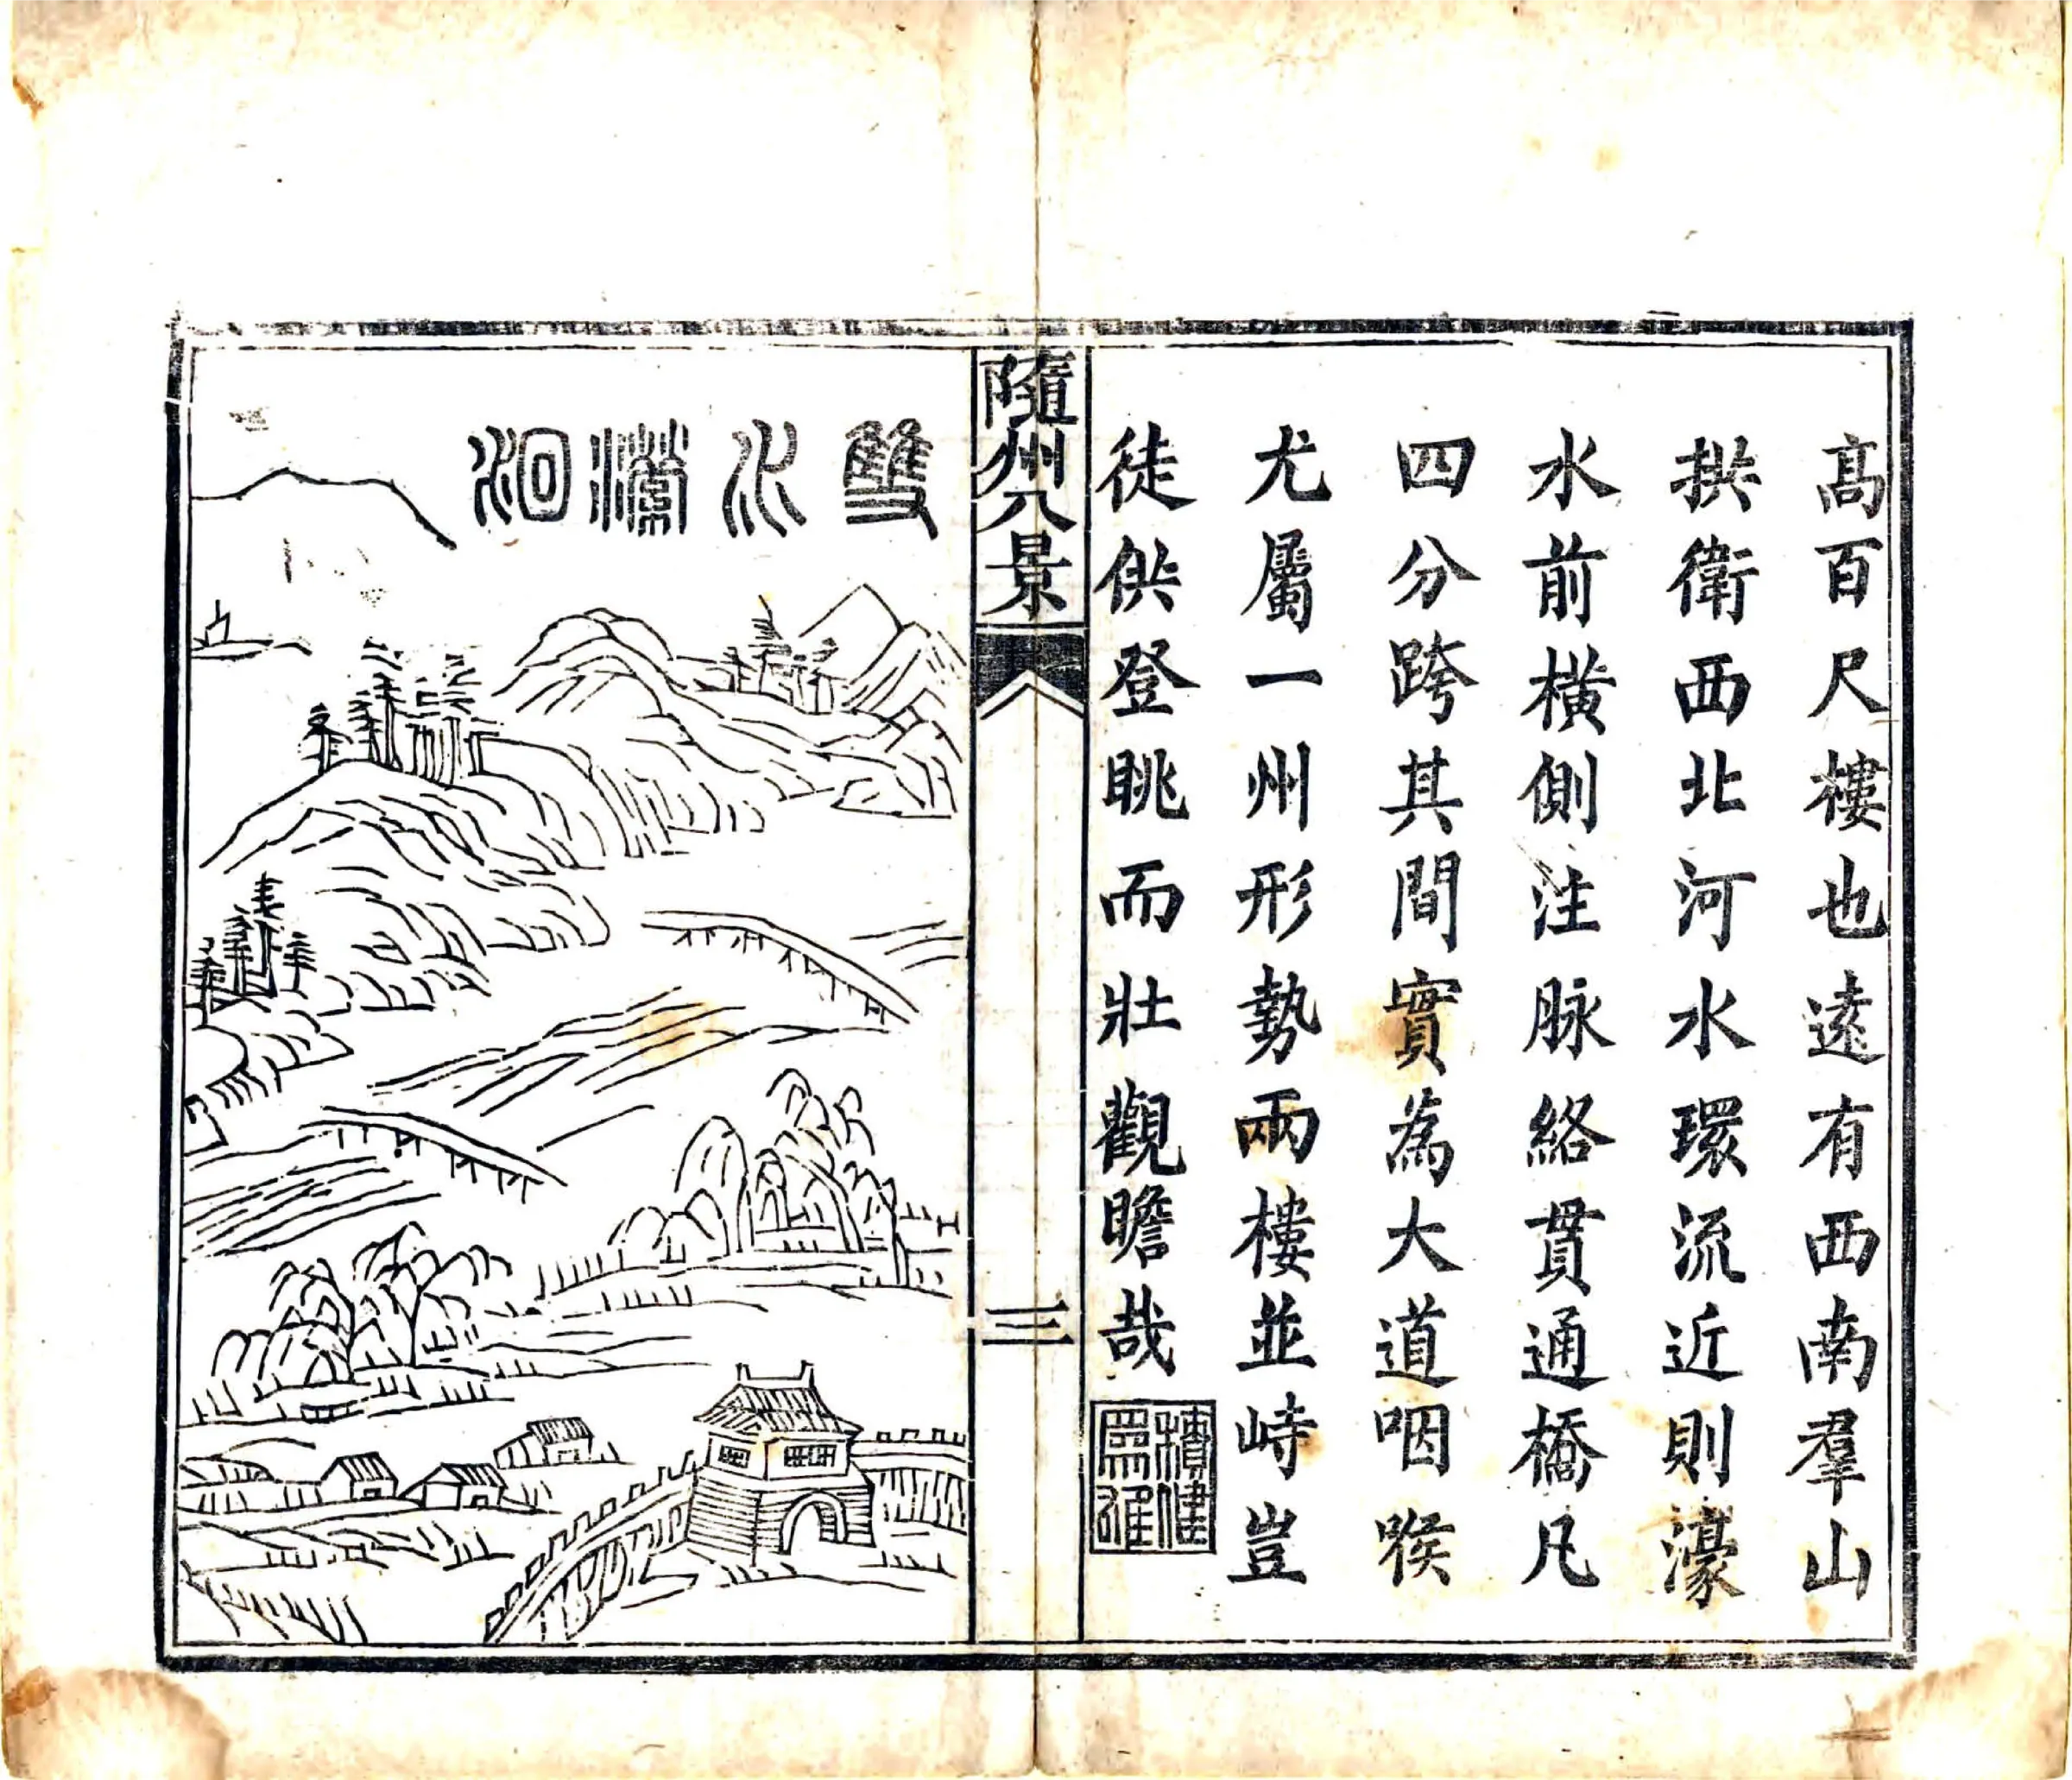 高百尺樓也遠有西南羣山
拱衛西北河水環流近則濠
水前橫側注脉絡貫通橋凡
四分跨其間實為大道咽喉
尤屬一州形勢兩樓並峙豈
徒供登眺而壯觀瞻哉
隨州八景
三
雙水瀠洄